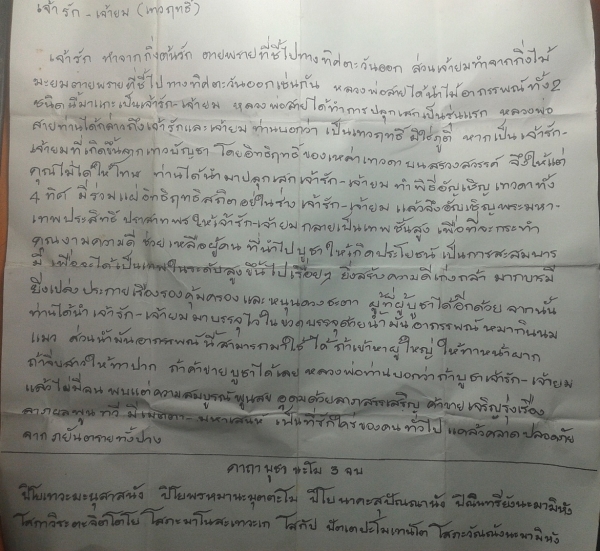 เจ้ารัก - เจ้ายม (เทวฤทธิ์)
เจ้ารัก ทำจากกิ่งต้นรัก ตายพรายที่ชี้ไปทางทิศตะวันออก ส่วนเจ้ายมทำจากกิ่งไม้
มะยมตายพรายที่ชี้ไปทางทิศตะวันออกเช่นกัน หลวงพ่อสายได้นำไม้อาถรรพณ์ทั้ง2
ชนิดนี้มาแกะเป็นเจ้ารัก-เจ้ายม หลวงพ่อสายได้ทำการปลุกเสกเป็นรุ่นแรก หลวงพ่อ
สายท่านได้กล่าวถึงเจ้ารักและเจ้ายม ท่านบอกว่า เป็นเทวฤทธิ์ มิใช่ภูติ หากเป็น เจ้ารัก-
เจ้ายมที่เกิดขึ้นจากเทวบัญชา โดยอิทธิฤทธิ์ของเหล่าเทวดาบนสรวงสวรรค์ จึงให้แต่
คุณไม่ได้ให้โทษ ท่านได้นำมาปลุกเสก เจ้ารัก-เจ้ายม ทำพิธีอัญเชิญ เทวดาทั้ง
4 ทิศ มีร่วมแผ่อิทธิฤทธิสถิตอยู่ในร่าง เจ้ารัก-เจ้ายม แล้วจึงอัญเชิญพระมหา-
เทพประสิทธิ์ ปราสาทพรให้เจ้ารัก-เจ้ายม กลายเป็นเทพชั้นสูง เพื่อที่จะกระทำ
คุณงามความดี ช่วยเหลือผู้คน ที่นำไปบูชาให้เกิดประโยชน์ เป็นการสะสมบาร
มี เพื่อจะได้เป็นเทพในระดับสูงขึ้นไปเรื่อยๆ ยิ่งสร้างความดีเก่งกล้า มากบารมี
ยิ่งเปล่งประกายเรืองรองคุ้มครองและหนุนดวงชะตา ผู้ที่ผู้บูชาได้อีกด้วย จากนั้น
ท่านได้นำเจ้ารัก-เจ้ายมมาบรรจุไว้ในขวดบรรจุด้วยน้ำมันอาถรรพณ์หมากินนม
แมว ส่วนน้ำมันอาถรรพณ์นี้สามารถมาใช้ได้ ถ้าเข้าหาผู้ใหญ่ให้ทาหน้าผาก
ถ้าจีบสาวให้ทาปาก ถ้าค้าขายบูชาได้เลย หลวงพ่อท่านบอกว่าถ้าบูชาเจ้ารัก-เจ้ายม
แล้วไม่มีจน พบแต่ความสมบูรณ์พูนสุข อุดมด้วยลาภสรรเสริญ ค้าขายเจริญรุ่งเรือง
ลาภผลพูนทวี มีเมตตา-มหาเสน่ห์ เป็นที่รักใคร่ของคนทั่วไป แคล้วคลาดปลอดภัย
จากภยันตรายทั้งปวง
คาถาบูชา นะโม 3 จบ
ปิโยเทวะมะนุสาสนัง ปิโยพรหมานะมุตตะโม ปิโยนาคะสุปัณณานัง ปิณินทรียังนะมามิหัง